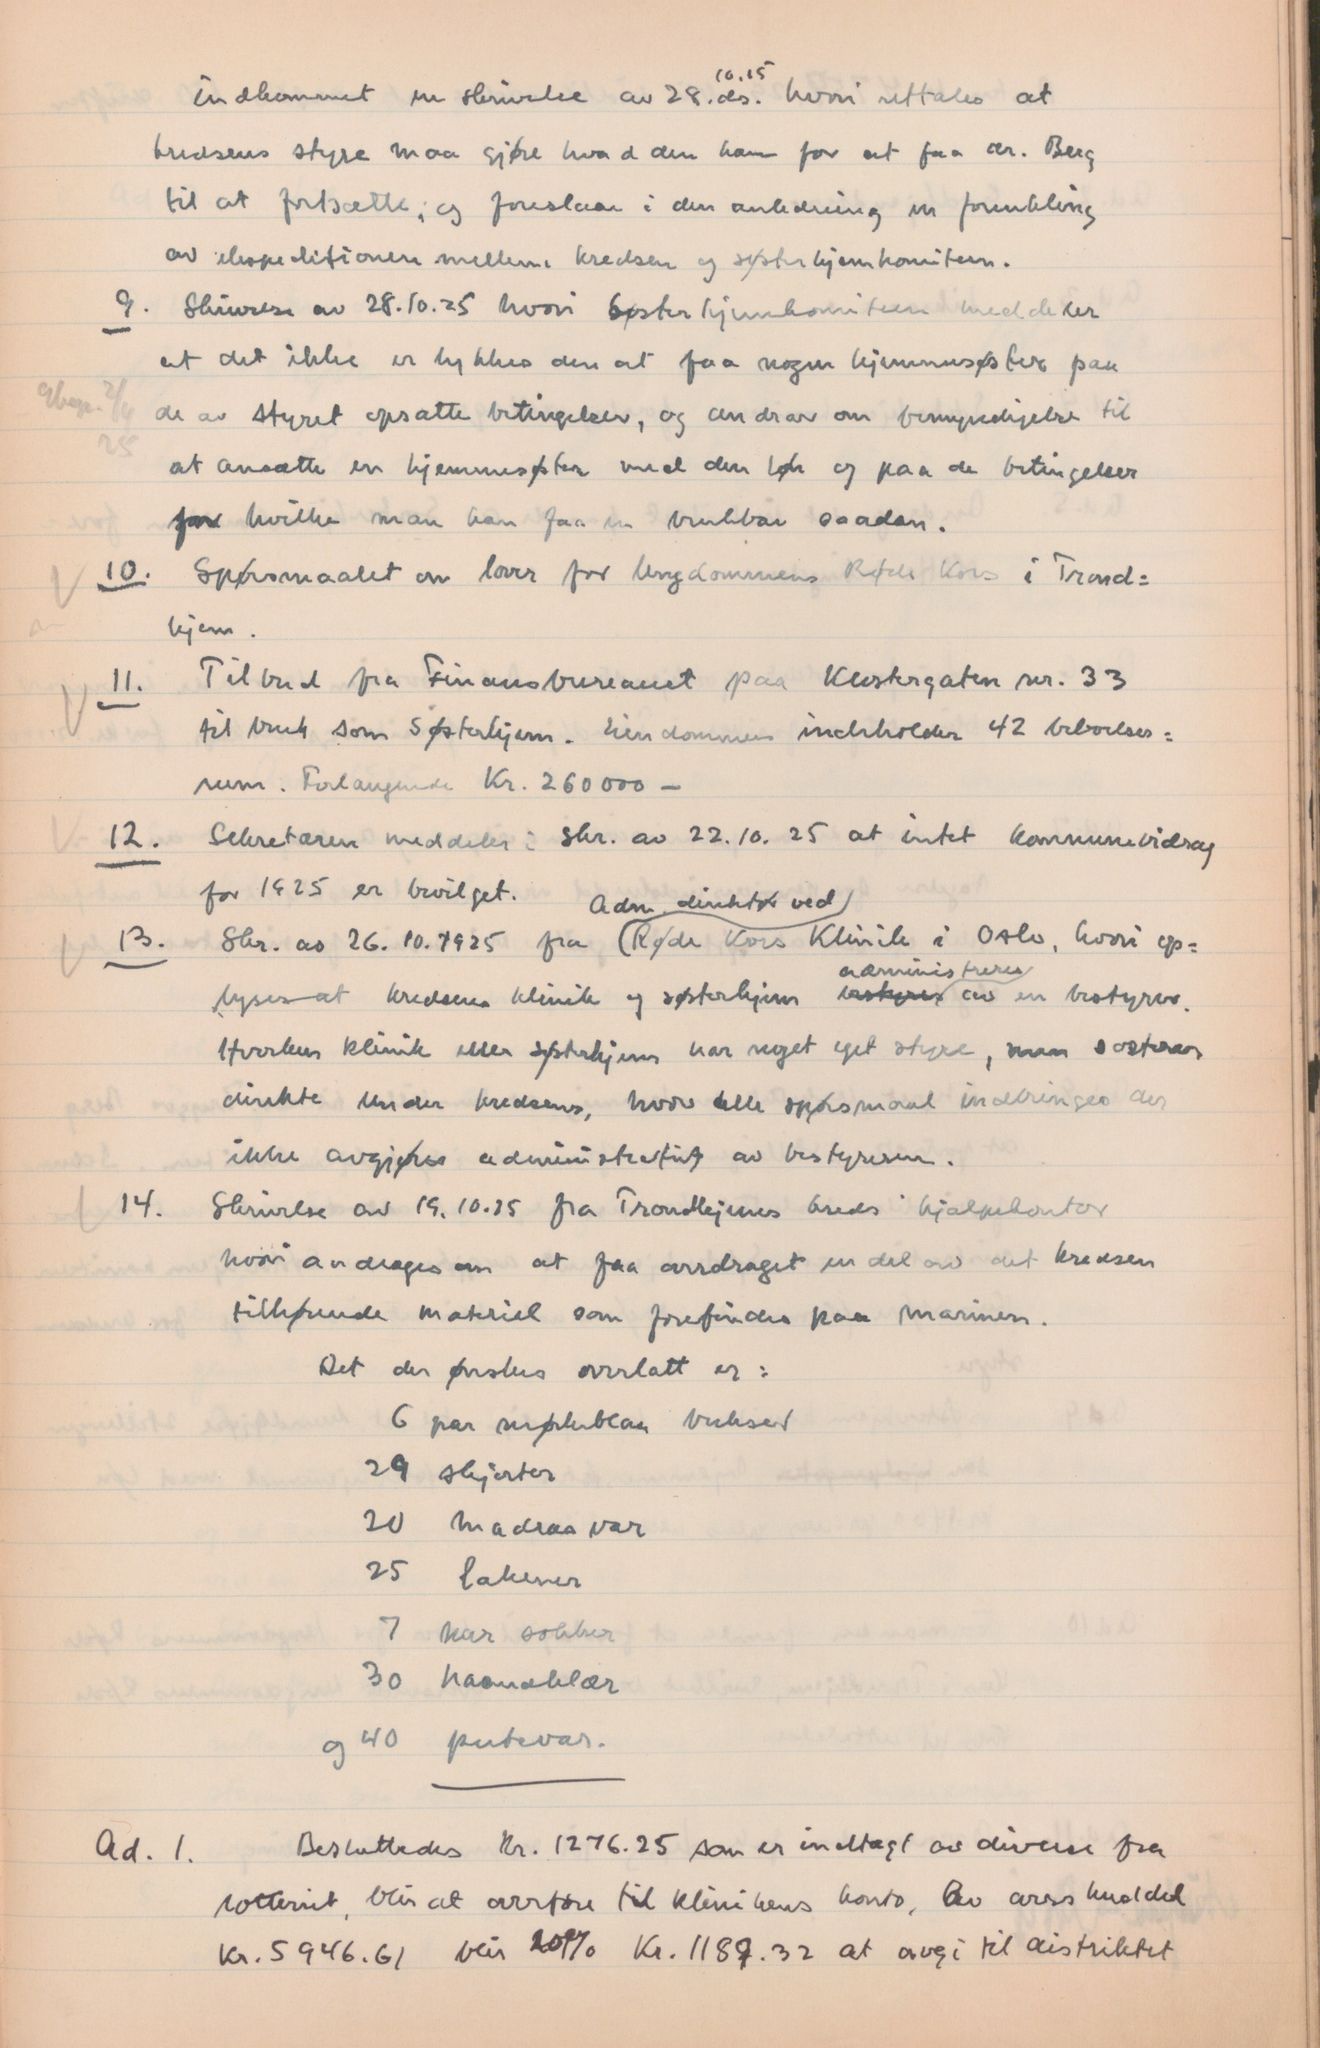 10.25
indkommet en skrivelse av 28. ds. hvori uttales at
kredsens styre maa gjøre hvad den kan for at faa dr. Berg
til at fortsætte, og foreslaar i den anledning en forenkling
av ekspeditionen mellem kredsen og søsterhjemkomiteen.
9. Skrivelse av 28.10.25 hvori Søsterhjemkomiteen meddeler
at det ikke er lykkes den at faa nogen hjemmesøster paa
de av styret opsatte betingelser, og andrar om bemyndigelse til
at ansætte en hjemmesøster med den løn og paa de betingelser
for hvilke man kan faa en brukbar saadan.
10. Spørsmaalet om lover for Ungdommens Røde Kors i Trond=
hjem.
11. Tilbud fra Finansbureauet paa Klostergaten nr. 33
til bruk som Søsterhjem. Eiendommen indeholder 42 beboelses=
rum. Forlangende Kr. 260000 —
12. Sekretæren meddeler i skr. av 22.10.25 at intet kommunebidrag
for 1925 er bevilget.
Adm. direktør ved
13. Skr. av 26.10.1925 fra Røde Kors Klinik i Oslo, hvori op=
administreres
lyses at kredsens klinik og søsterhjem bestyres av en bestyrer.
Hverken klinik eller søsterhjem har noget eget styre, men sorterer
direkte under kredsens, hvor alle spørsmaal indbringes der
ikke avgjøres administrativt av bestyreren.
14. Skrivelse av 19.10.25 fra Trondhjems kreds' hjælpekontor
hvori andrages om at faa overdraget en del av det kredsen
tilhørende materiel som forefindes paa marinen.
Det der ønskes overlatt er:
6 par mørkeblaa bukser
29 skjorter
20 madrasvar
25 lakener
7 par sokker
30 haandklær
og 40 putevar.
Ad. 1. Besluttedes Kr. 1276.25 som er indtægt av diverse fra
lotteriet, blir at overføre til klinikens konto, Av
Kr. 5946.61 blir 20% Kr. 1189.32 at avgi til distriktet